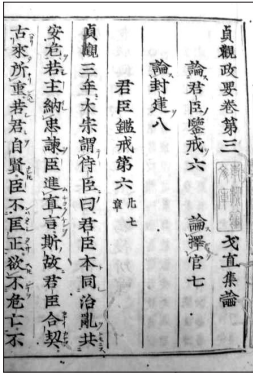 貞觀政要卷第三 戈直集論
論君臣鑒戒六 論擇官七
論封建八
君臣鑑戒第六 凡七章
貞觀三年太宗謂侍臣曰君臣本同治亂共
安危若主納忠諫臣進直言斯故君臣合契
古來所重若君自賢臣不匡正欲不危亡不